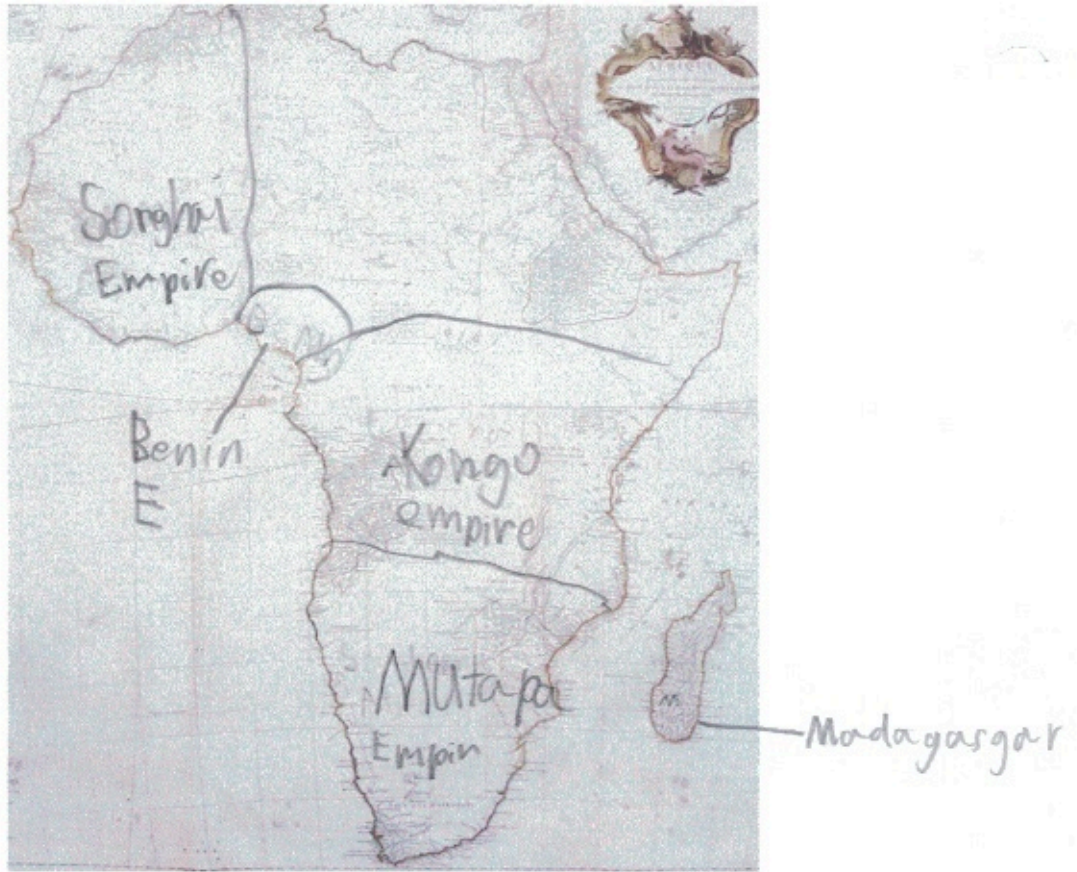 Songhai
Empire
Benin
E
Kongo
empire
Mutapa
Empin
M
Madagasgar